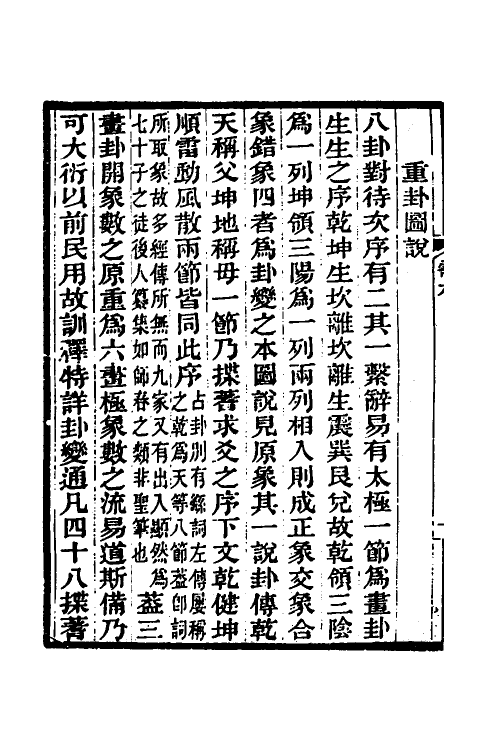 重卦圖說
八卦對待次序有二其一繫辭易有太極一節為畫卦
生生之序乾坤生坎離坎離生震巽艮兌故乾領三陰
為一列坤領三陽為一列兩列相入則成正象交象合
象錯象四者為卦變之本圖說見原象其一說卦傳乾
天稱父坤地稱母一節乃揲蓍求爻之序下文乾健坤
順雷動風散兩節皆同此序
占卦別有繇詞左傳屢稱
之乾為天等八節葢即詞
所取象故多經傳所無而九家又有出入顯然為
七十子之徒後人纂集如師春之類非聖筆也
葢三
畫卦開象數之原重為六畫極象數之流易道斯備乃
可大衍以前民用故訓釋特詳卦變通凡四十八揲蓍